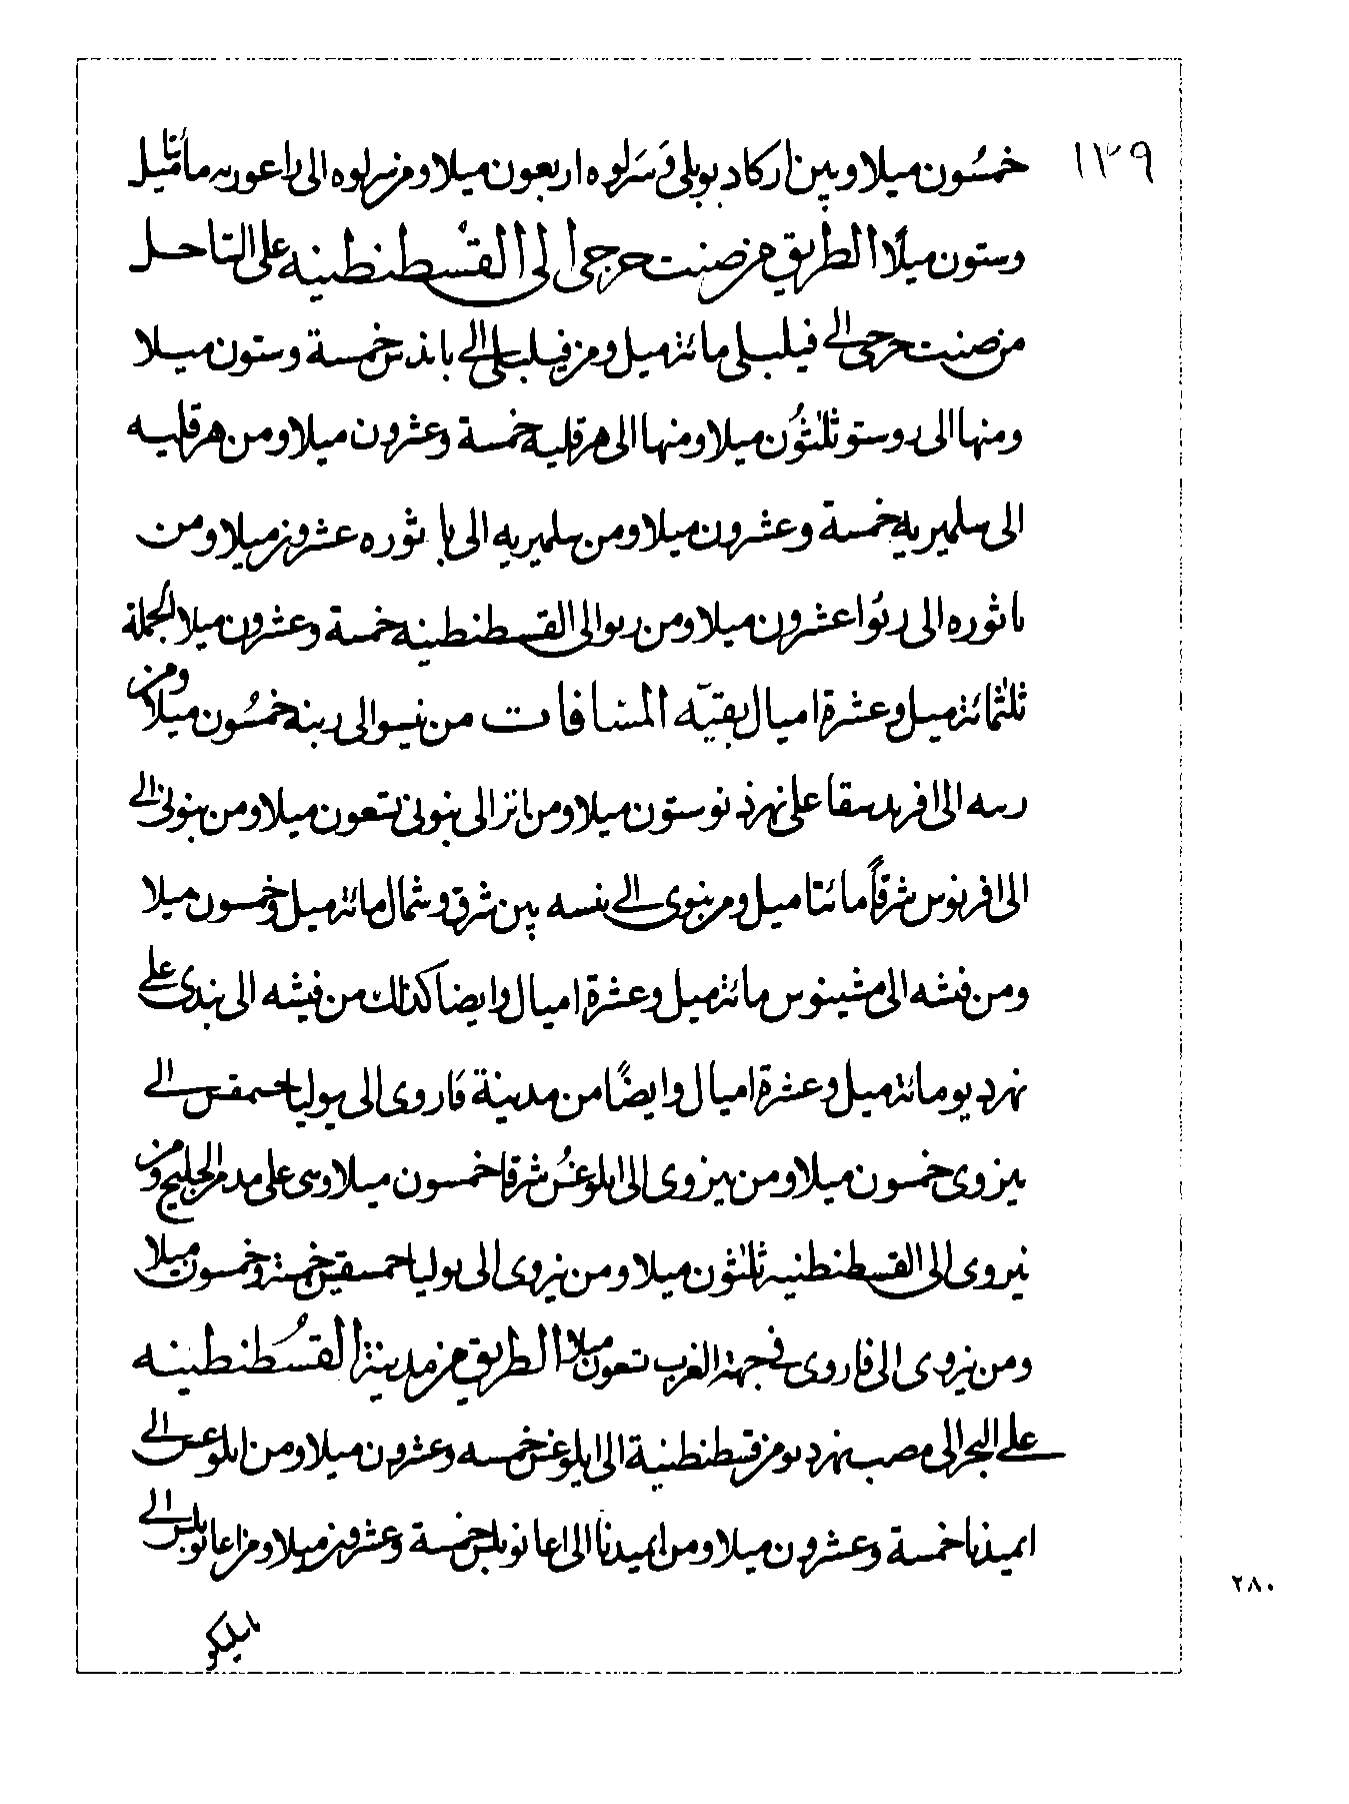 ١٣٩
خمسُون ميلا وبين اركاد بوبلى وَسَرلوه اربعون ميلا ومن سرلوه الى راعوريه مائتا ميل
وستون ميلًا الطريق من صنت جرجى الى القسطنطينه على الساحل
من صنت جرجى الى فيلبلى مائة ميل ومن فيلبلى الى باندس خمسة وستون ميلا
ومنها الى روستو ثلثون ميلا ومنها الى هرقليه خمسة وعشرون ميلا ومن هرقليه
الى سلمبريه خمسة وعشرون ميلا ومن سلمبريه الى باثوره عشرون ميلا ومن
باثوره الى ريوا عشرون ميلا ومن ريوا الى القسطنطينه خمسة وعشرون ميلا الجملة
ثلثمائة ميل وعشرة اميال بقيّه المسافات من نيسوا الى ربنه خمسُون ميلا ومن
ربنه الى افريدسقا على نهر دنو ستون ميلا ومن اترا الى بنوى تسعون ميلا ومن بنوى الى
الى افرنوس شرقاً مائتا ميل ومن بنوى الى بنسه بين شرق وشمال مائة ميل وخمسون ميلا
ومن فيشه الى مشينوس مائة ميل وعشرة اميال وايضا كذلك من فيشه الى بندى على
نهر دنو مائة ميل وعشرة اميال وايضًا من مدينة قاروى الى بوليا خسمقس الى
بيزوى خمسون ميلا ومن بيزوى الى ايلوغس شرقا خمسون ميلا وهى على فم الخليج ومن
نيروى الى القسطنطنيه ثلثون ميلا ومن نيزوى الى بوليا خمسقس خمسة وخمسون ميلا
ومن نيزوى الى قاروى فى جهة الغرب تسعون ميلا الطريق من مدينة القسطنطينه
على البحر الى مصب نهر دنو من قسطنطنية الى ايلوغس خمسه وعشرون ميلا ومن ايلوغس الى
اميذنا خمسة وعشرون ميلا ومن اميدنا الى اغا نوبلس خمسة وعشرون ميلا ومن اغا نوبلس الى
٢٨٠